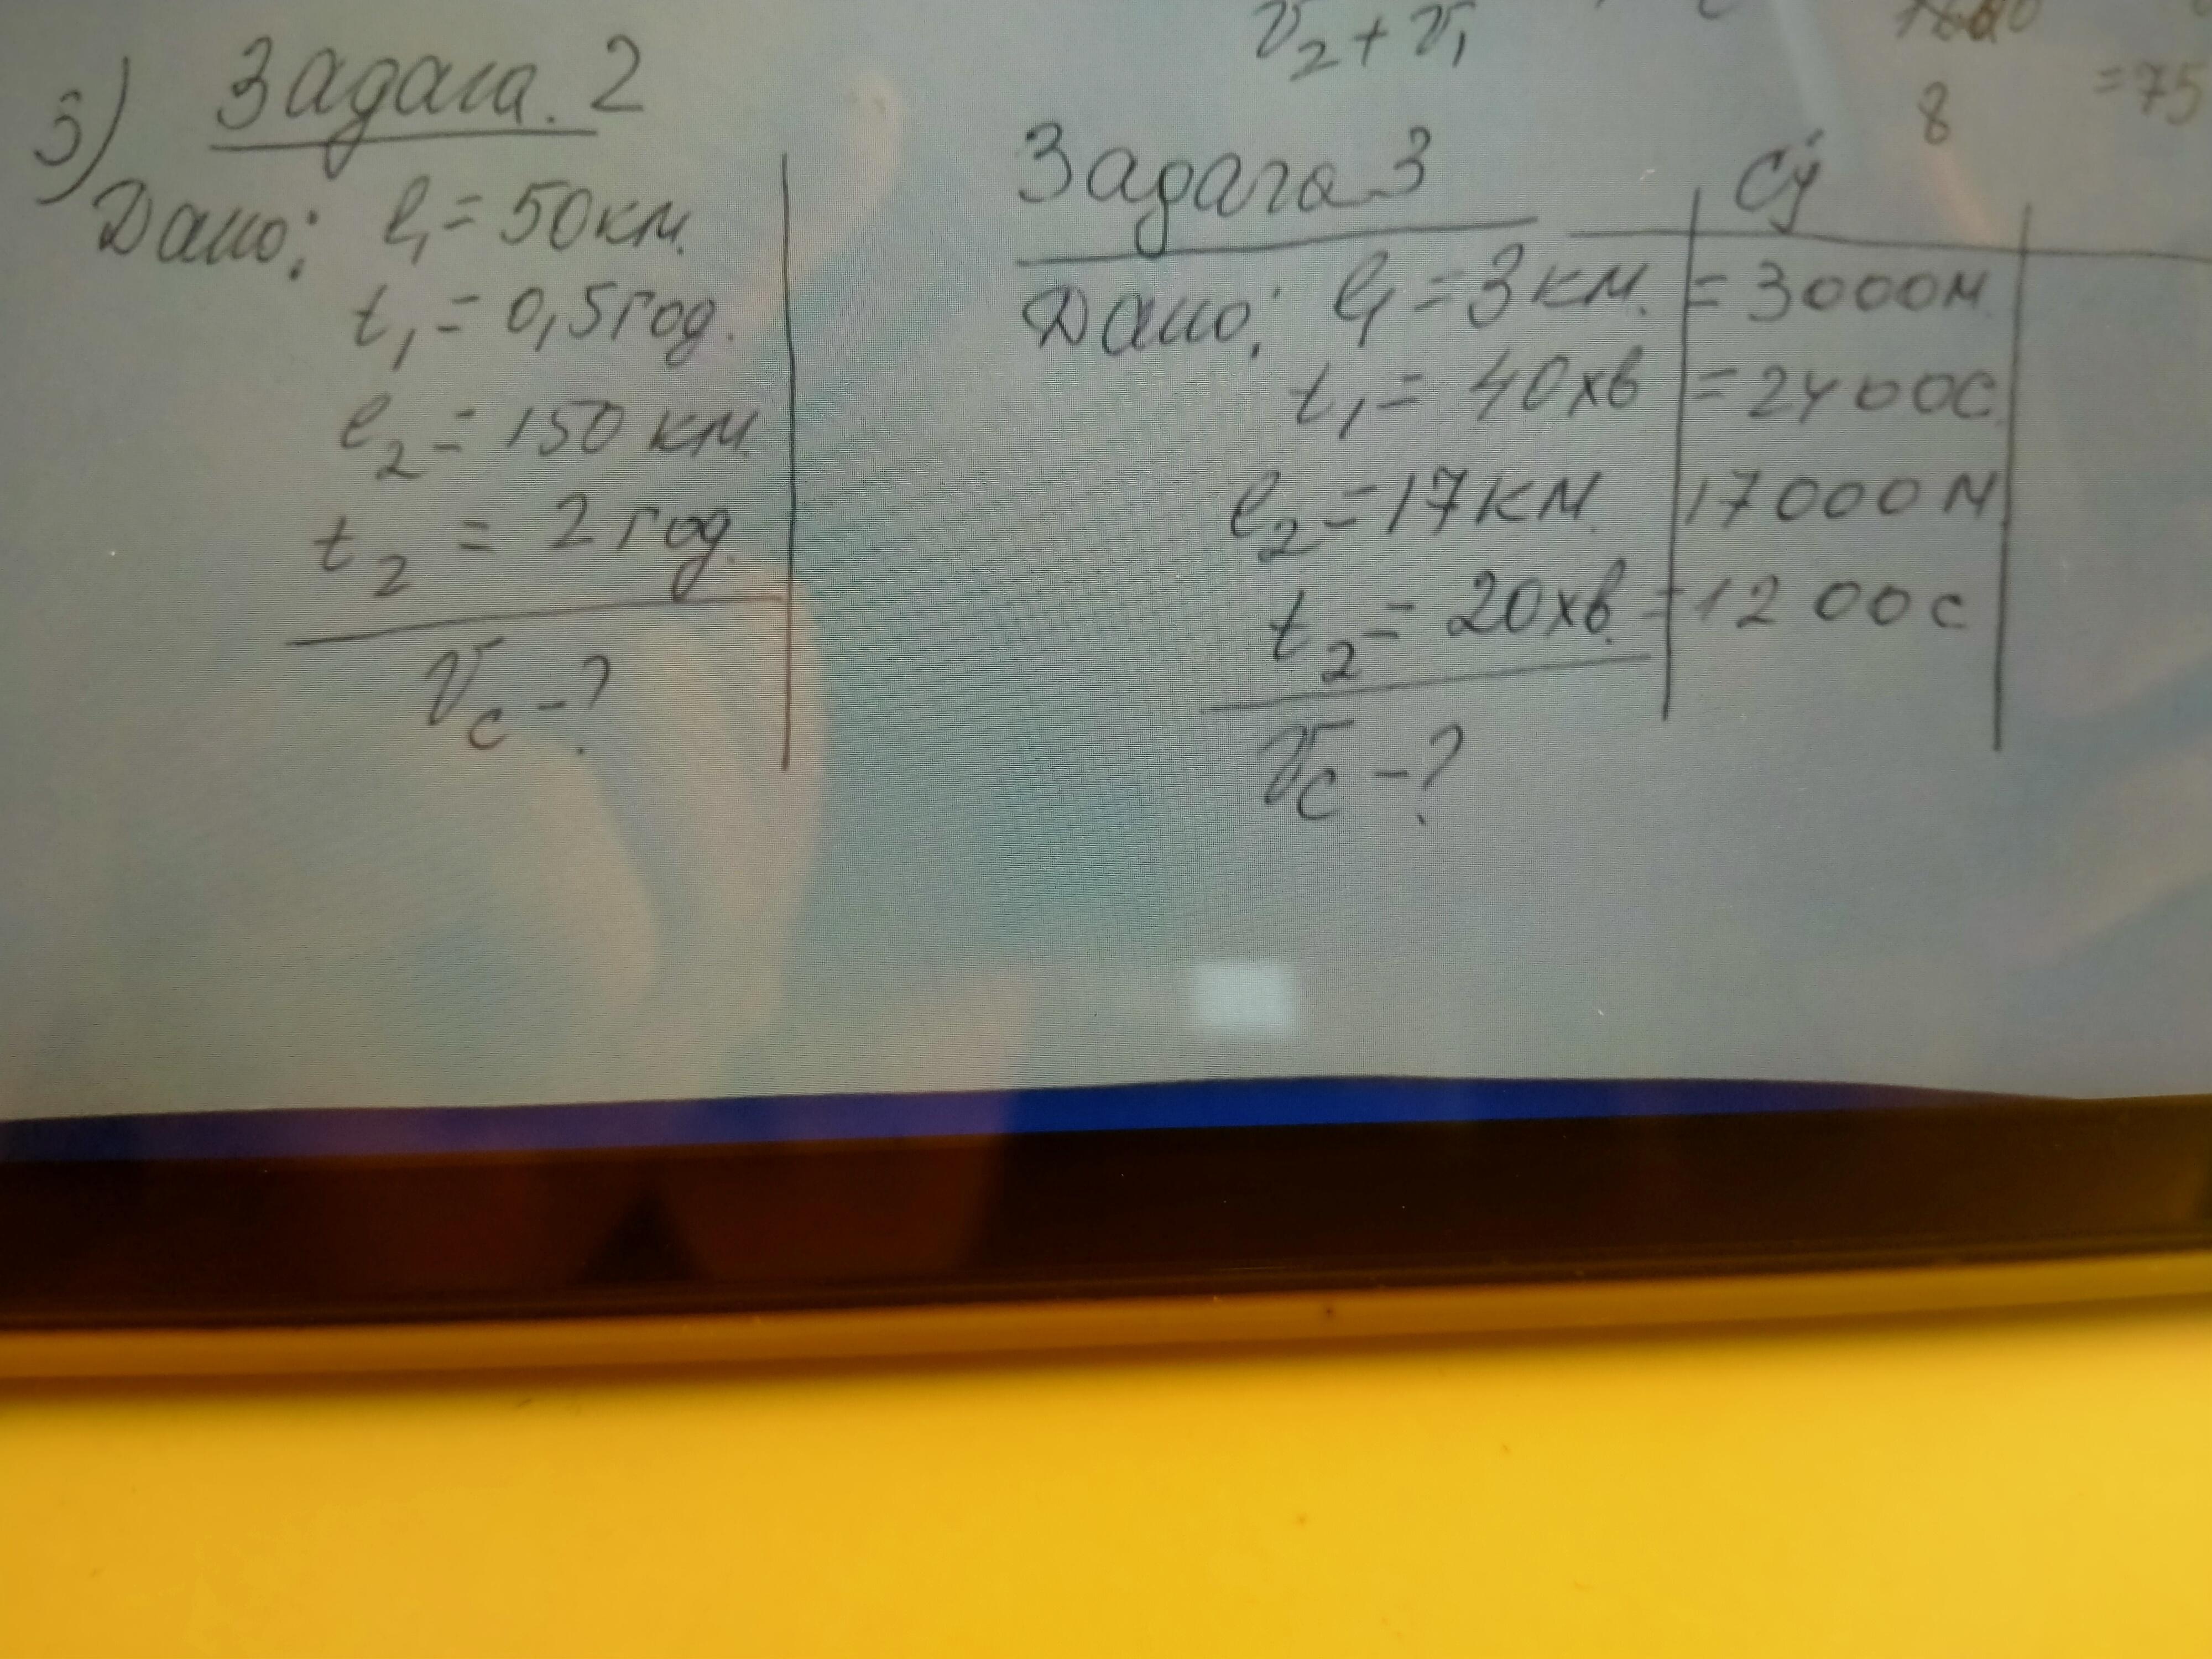 3) Задача. 2
Дано: l₁ = 50 км.
t₁ = 0,5 год.
l₂ = 150 км.
t₂ = 2 год.
Vc - ?
V₂ + V₁
8
= 75
Задача 3
СІ
Дано: l₁ = 3 км. = 3000 м
t₁ = 40 хв = 2400 с.
l₂ = 17 км. 17000 м
t₂ = 20 хв. = 1200 с
Vc - ?